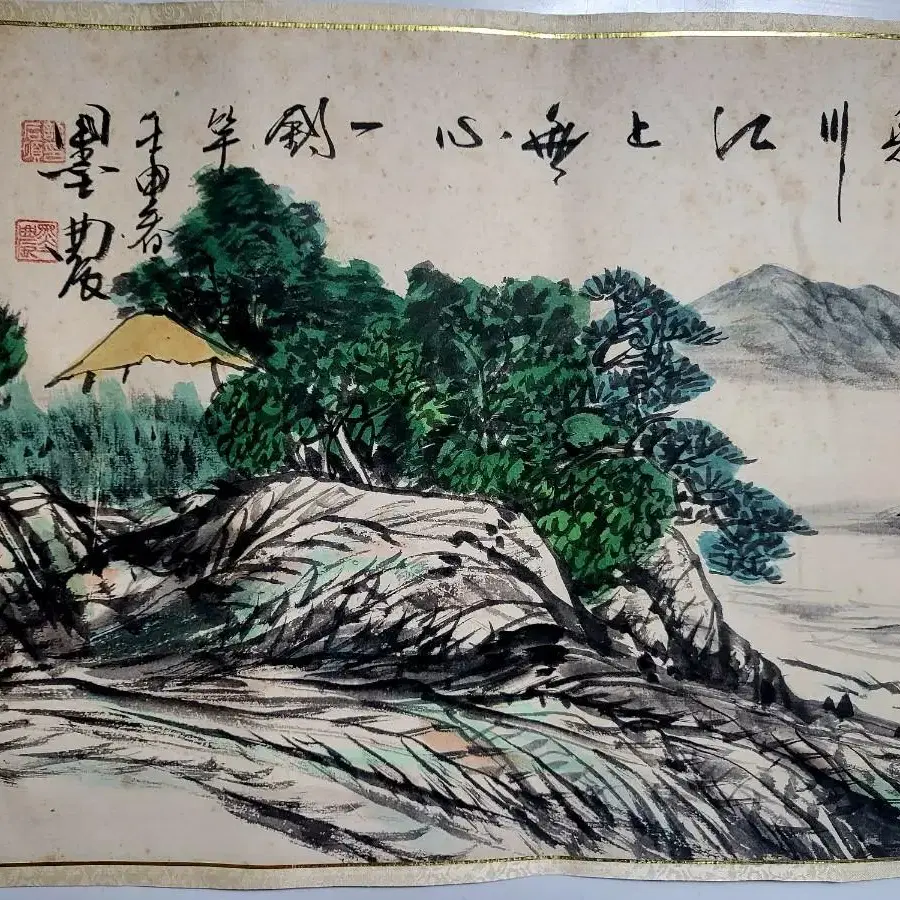 川江上無心一釣竿
壬申春
墨農